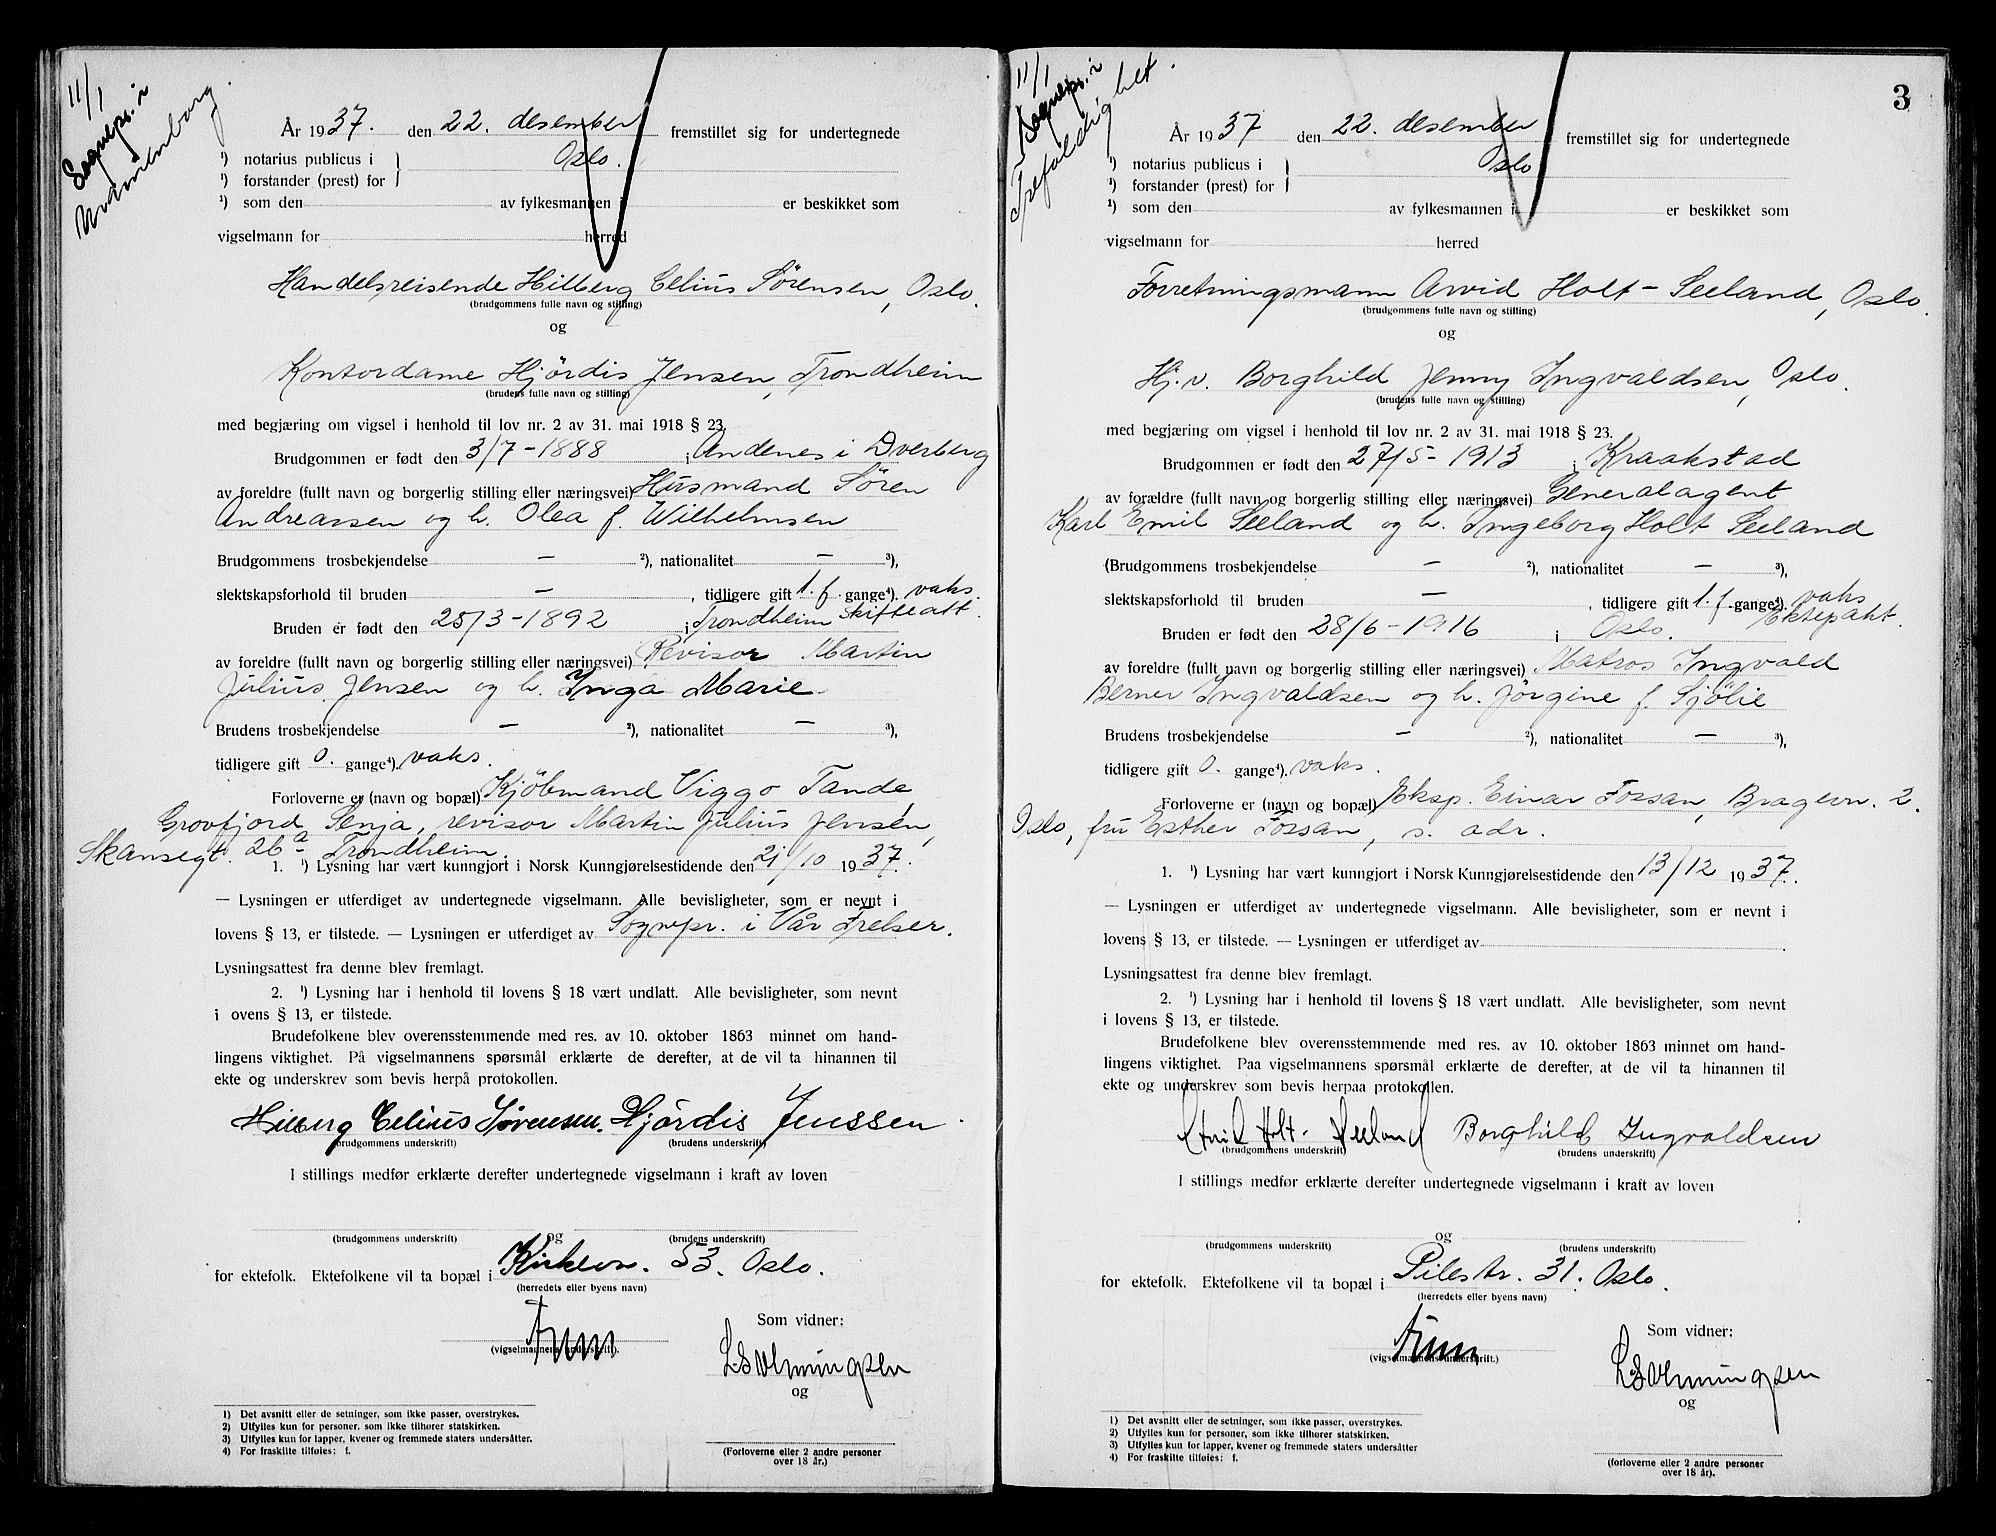 11/1
Sogneps. i
Uranienborg.
År 1937. den 22. desember fremstillet sig for undertegnede
¹) notarius publicus i Oslo.
¹) forstander (prest) for
¹) som den av fylkesmannen i er beskikket som
vigselmann for herred
Handelsreisende Hilberg Celius Sørensen, Oslo.
(brudgommens fulle navn og stilling)
og
Kontordame Hjördis Jensen, Trondheim
(brudens fulle navn og stilling)
med begjæring om vigsel i henhold til lov nr. 2 av 31. mai 1918 § 23.
Brudgommen er født den 3/7-1888 i Andenes i Dverberg
av foreldre (fullt navn og borgerlig stilling eller næringsvei) Husmand Søren
Andreassen og h. Olea f. Wilhelmsen
Brudgommens trosbekjendelse — ²), nationalitet — ³),
slektskapsforhold til bruden — , tidligere gift 1. f. gange⁴). vaks.
Skifteatt.
Bruden er født den 25/3-1892 i Trondheim
av foreldre (fullt navn og borgerlig stilling eller næringsvei) Revisor Martin
Julius Jensen og h. Inga Marie.
Brudens trosbekjendelse — ²), nationalitet — ³),
tidligere gift 0. gange⁴). vaks.
Forloverne er (navn og bopæl) Kjöbmand Viggo Tande,
Grovfjord, Senja, revisor Martin Julius Jensen,
Skansegt. 26a Trondheim.
1. ¹) Lysning har vært kunngjort i Norsk Kunngjørelsestidende den 21/10 1937.
— Lysningen er utferdiget av undertegnede vigselmann. Alle bevisligheter, som er nevnt i
lovens § 13, er tilstede. — Lysningen er utferdiget av Sognepr. i Vår Frelser.
Lysningsattest fra denne blev fremlagt.
2. ¹) Lysning har i henhold til lovens § 18 vært undlatt. Alle bevisligheter, som nevnt
i ovens § 13, er tilstede.
Brudefolkene blev overensstemmende med res. av 10. oktober 1863 minnet om hand-
lingens viktighet. På vigselmannens spørsmål erklærte de derefter, at de vil ta hinannen til
ekte og underskrev som bevis herpå protokollen.
Hilberg Celius Sørensen. Hjördis Jenssen
(brudgommens underskrift) (brudens underskrift)
I stillings medfør erklærte derefter undertegnede vigselmann i kraft av loven
og
(brudgommens underskrift) (brudens underskrift)
for ektefolk. Ektefolkene vil ta bopæl i Kirkevn. 53. Oslo.
(herredets eller byens navn)
(vigselmannens underskrift).
Som vidner:
og
(Forloverne eller 2 andre personer
over 18 år.)
1) Det avsnitt eller de setninger, som ikke passer, overstrykes.
2) Utfylles kun for personer. som ikke tilhører statskirken.
3) Utfylles kun for lapper, kvener og fremmede staters undersåtter.
4) For fraskilte tilføies: f.
3
11/1
Sogneps. i
Trefoldighet.
År 1937 den 22. desember fremstillet sig for undertegnede
¹) notarius publicus i Oslo
¹) forstander (prest) for
¹) som den av fylkesmannen i er beskikket som
vigselmann for herred
Forretningsmann Arvid Holt-Seeland, Oslo.
(brudgommens fulle navn og stilling)
og
Hj.v. Borghild Jenny Ingvaldsen, Oslo.
(brudens fulle navn og stilling)
med begjæring om vigsel i henhold til lov nr. 2 av 31. mai 1918 § 23.
Brudgommen er født den 27/5-1913 i Kraakstad
av forældre (fullt navn og borgerlig stilling eller næringsvei) Generalagent
Karl Emil Seeland og h. Ingeborg Holt Seeland
(Brudgommens trosbekjendelse — ²), nationalitet — ³),
slektskapsforhold til bruden — , tidligere gift 1. f. gange⁴). vaks
Ektepakt.
Bruden er født den 28/6-1916 i Oslo.
av foreldre (fullt navn og borgerlig stilling eller næringsvei) Matros Ingvald
Berner Ingvaldsen og h. Jörgine f. Sjölie
Brudens trosbekjendelse — ²), nationalitet — ³),
tidligere gift 0. gange⁴). vaks.
Forloverne er (navn og bopæl) Eksp. Einar Fossan, Bragevn. 2.
Oslo, fru Esther Fossan, s. adr.
1. ¹) Lysning har vært kunngjort i Norsk Kunngjørelsestidende den 13/12 1937.
— Lysningen er utferdiget av undertegnede vigselmann. Alle bevisligheter, som er nevnt i
lovens § 13, er tilstede. — Lysningen er utferdiget av .
Lysningsattest fra denne blev fremlagt.
2. ¹) Lysning har i henhold til lovens § 18 vært undlatt. Alle bevisligheter, som nevnt
i lovens § 13, er tilstede.
Brudefolkene blev overensstemmende med res. av 10. oktober 1863 minnet om hand-
lingens viktighet. Paa vigselmannens spørsmål erklærte de derefter, at de vil ta hinannen til
ekte og underskrev som bevis herpaa protokollen.
Arvid Holt-Seeland Borghild Ingvaldsen
(brudgommens underskrift) (brudens underskrift)
I stillings medfør erklærte derefter undertegnede vigselmann i kraft av loven
og
(brudgommens underskrift) (brudens underskrift)
for ektefolk. Ektefolkene vil ta bopæl i Pilestr. 31. Oslo.
(herredets eller byens navn)
(vigselmannens underskrift.)
Som vidner:
og
(forloverne eller 2 andre personer
over 18 år).
1) Det avsnitt eller de setninger, som ikke passer, overstrykes.
2) Utfylles kun for personer, som ikke tilhører statskirken.
3) Utfylles kun for lapper, kvener og fremmede staters undersåtter
4) For fraskilte tilføies: f.